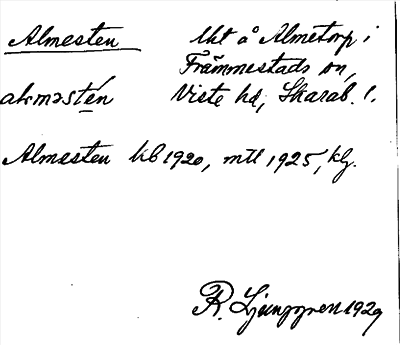 Almesten Uht å Almetorp i
Främmestads sn,
almǝstén Viste hd, Skarab. l.
Almesten kb 1920, mtl 1925, kg.
R. Ljunggren 1929